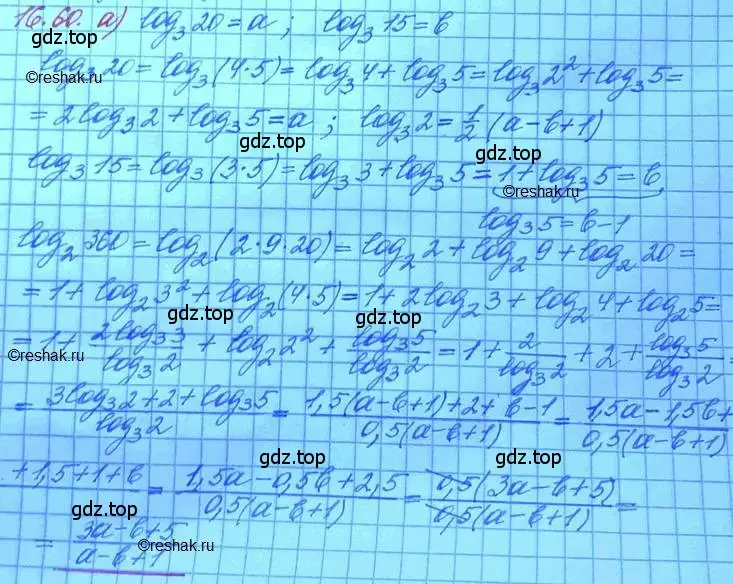 16.60. а) log₃20 = a; log₃15 = b
gdz.top gdz.top
log₃20 = log₃(4·5) = log₃4 + log₃5 = log₃2² + log₃5 =
©reshak.ru
= 2log₃2 + log₃5 = a; log₃2 = 1/2 (a-b+1)
gdz.top gdz.top
log₃15 = log₃(3·5) = log₃3 + log₃5 = 1 + log₃5 = b
©reshak.ru
log₃5 = b-1
log₂360 = log₂(2·9·20) = log₂2 + log₂9 + log₂20 =
= 1 + log₂3² + log₂(4·5) = 1 + 2log₂3 + log₂4 + log₂5 =
gdz.top gdz.top gdz.top
= 1 + 2log₃3/log₃2 + log₂2² + log₃5/log₃2 = 1 + 2/log₃2 + 2 + log₃5/log₃2 =
©reshak.ru
= (3log₃2 + 2 + log₃5)/log₃2 = (1,5(a-b+1) + 2 + b-1)/(0,5(a-b+1)) = (1,5a - 1,5b +)/(0,5(a-b+1))
gdz.top gdz.top
+1,5+1+b = (1,5a - 0,5b + 2,5)/(0,5(a-b+1)) = (0,5(3a-b+5))/(0,5(a-b+1)) =
gdz.top gdz.top gdz.top
= (3a-b+5)/(a-b+1)
©reshak.ru